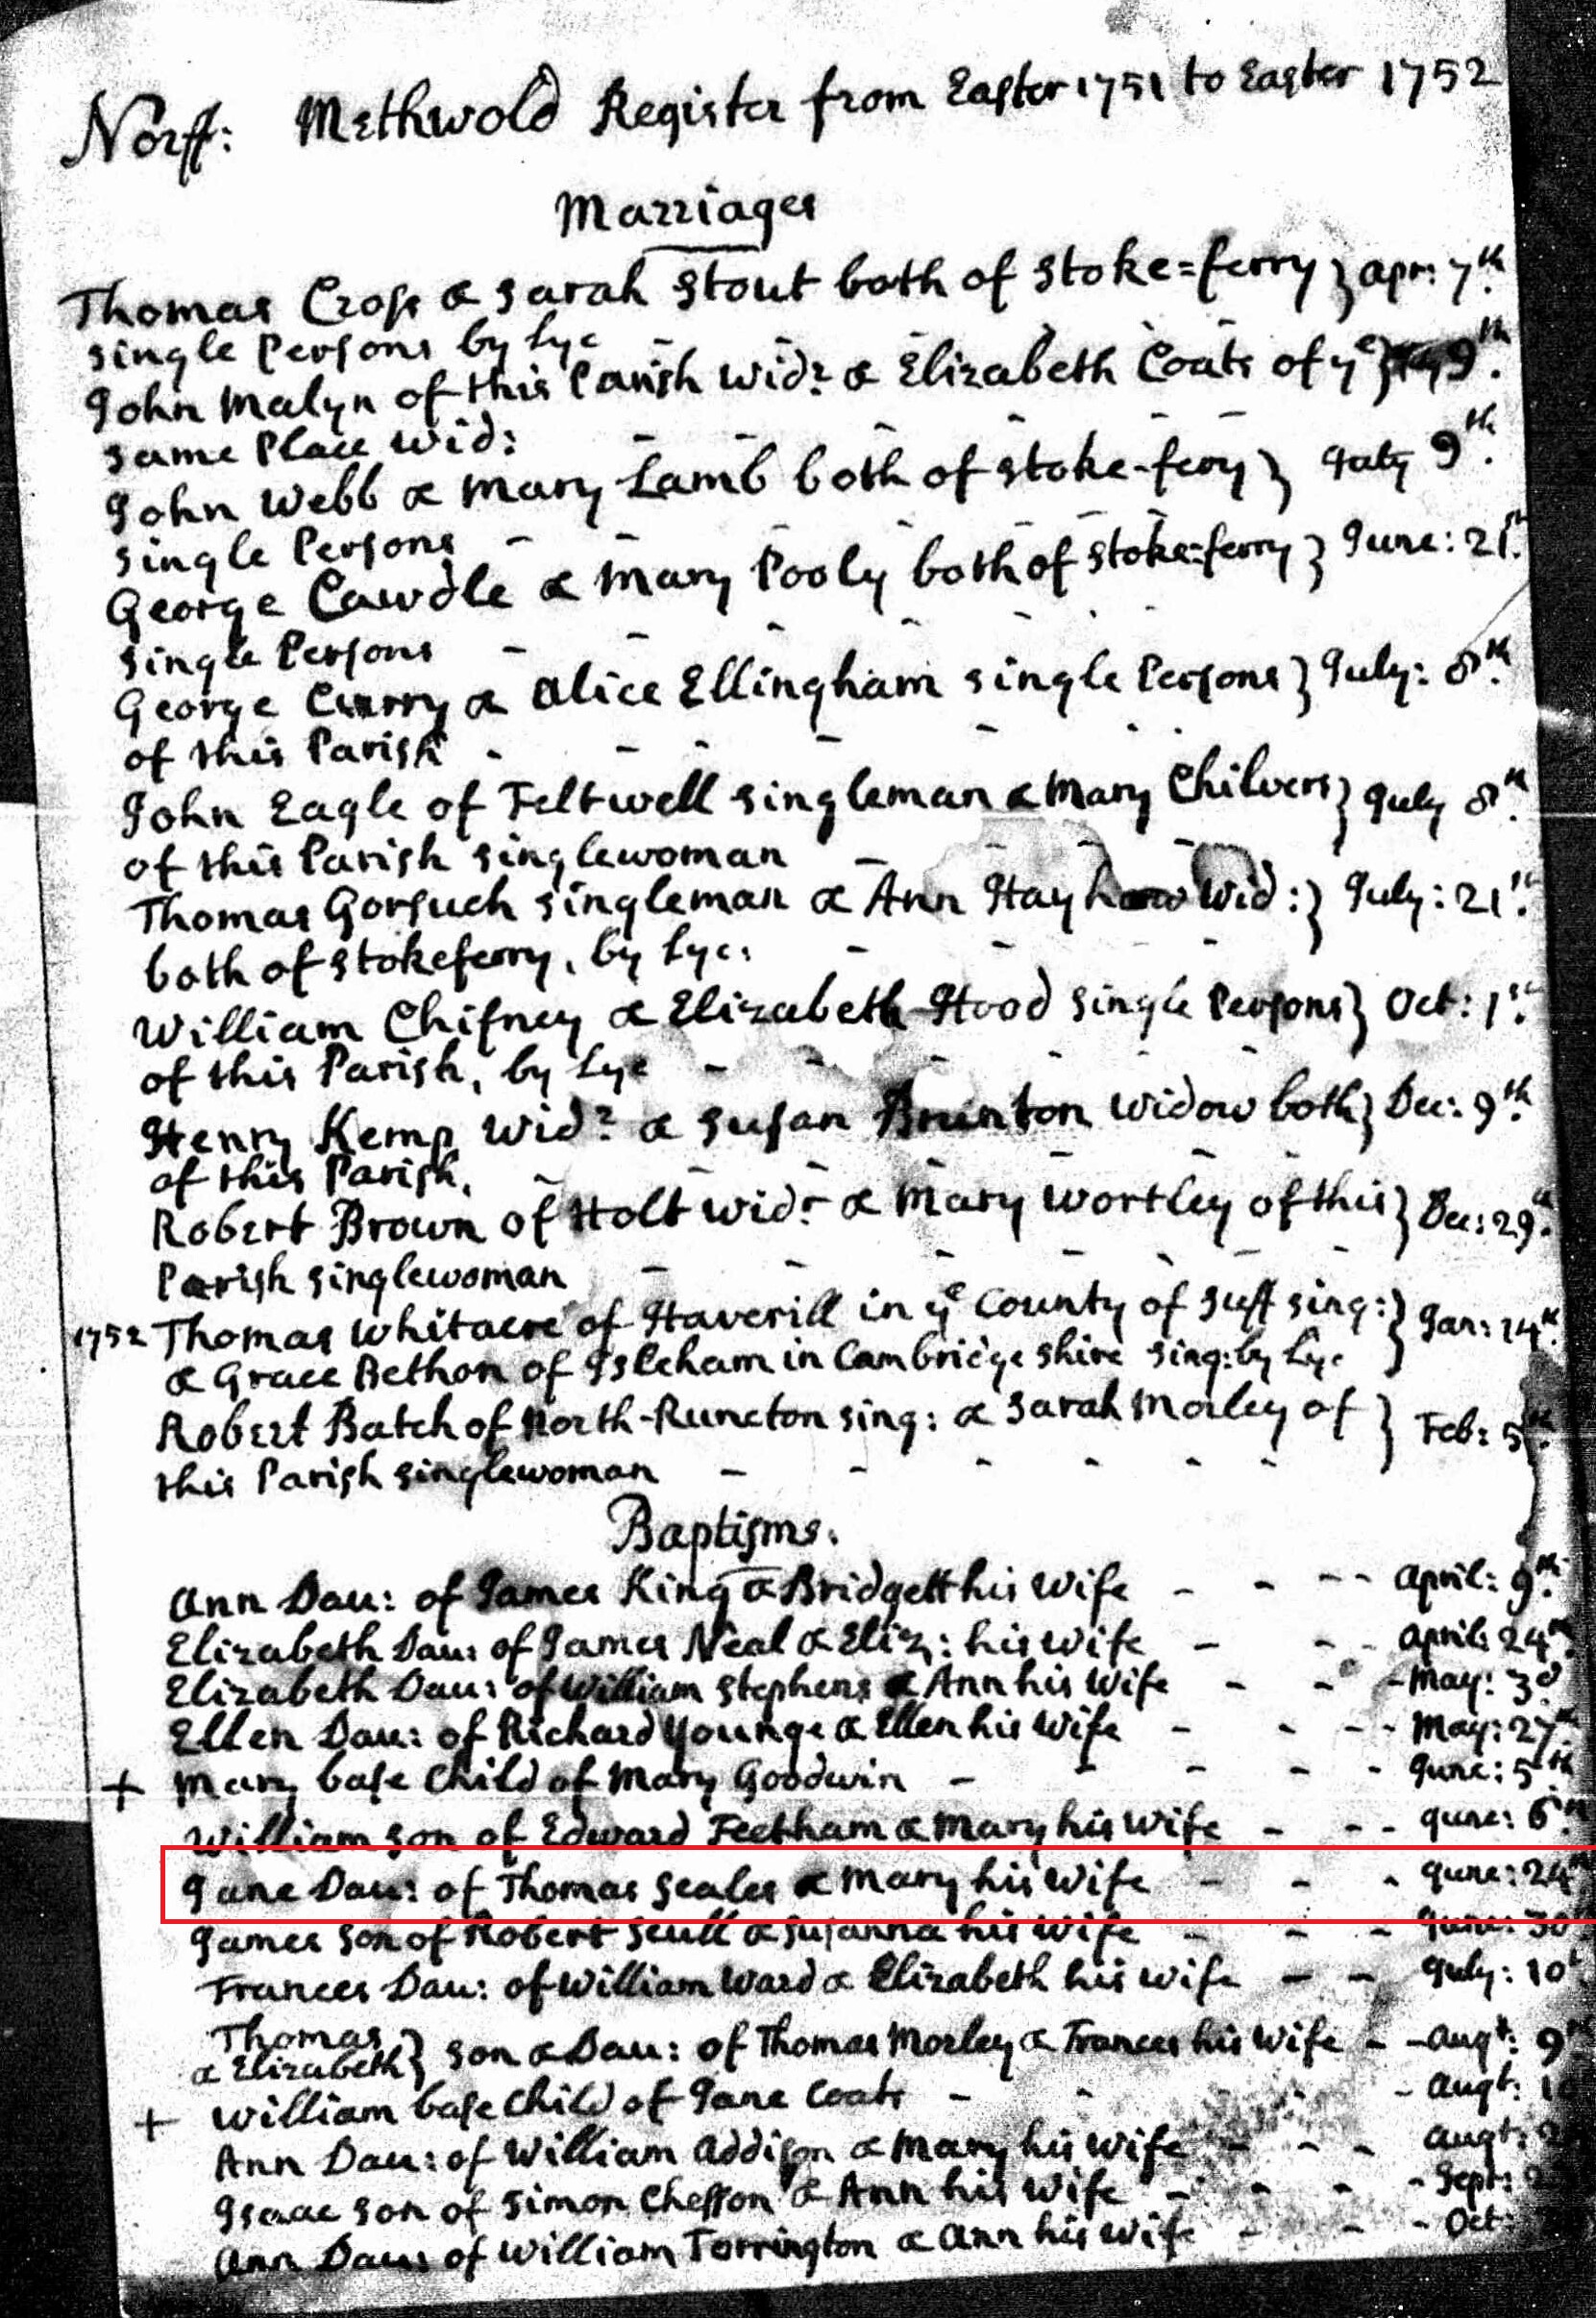 Norff: Methwold Register from Easter 1751 to Easter 1752
Marriages
Thomas Cross & Sarah Stout both of Stoke=ferry } Apr: 7th
single Persons by Lyc
John Malyn of this Parish Widr & Elizabeth Coats of ye } 9th
same Place Wid:
John Webb & Mary Lamb both of Stoke-fery } 9th
single Persons
George Cawdle & Mary Pooly both of Stoke=ferry } June: 21st
single Persons
George Curry & Alice Ellingham single Persons } July: 8th
of this Parish
John Eagle of Feltwell singleman & Mary Chilvers } July 8th
of this Parish singlewoman
Thomas Gorsuch singleman & Ann Hayhow Wid: } July: 21st
both of Stokeferry, by Lyc:
William Chifney & Elizabeth Hood single Persons } Oct: 1st
of this Parish, by Lyc
Henry Kemp Widr & Susan Brunton Widow both } Dec: 9th
of this Parish.
Robert Brown of Holt Widr & Mary Wortley of this } Dec: 29th
Parish singlewoman
1752 Thomas Whitacre of Haverill in ye County of Suff sing: } Jan: 14th
& Grace Bethon of Isleham in Cambridgeshire sing: by Lyc
Robert Batch of North-Runcton sing: & Sarah Morley of } Feb: 5th
this Parish singlewoman
Baptisms.
Ann Dau: of James King & Bridgett his Wife April: 9th
Elizabeth Dau: of James Neal & Eliz: his Wife April: 24th
Elizabeth Dau: of William Stephens & Ann his Wife May: 3d
Ellen Dau: of Richard Younge & Ellen his Wife May: 27th
+ Mary base Child of Mary Goodwin June: 5th
William son of Edward Feetham & Mary his Wife June: 6th
Jane Dau: of Thomas Scales & Mary his Wife June: 24th
James Son of Robert Scull & Susanna his Wife June: 30
Frances Dau: of William Ward & Elizabeth his Wife July: 10
Thomas
& Elizabeth } son & Dau: of Thomas Morley & Frances his Wife Augt: 9
+ William base Child of Jane Coats Augt:
Ann Dau: of William Addison & Mary his Wife Augt:
Isaac son of Simon Chesson & Ann his Wife Sept:
Ann Dau: of William Torrington & Ann his Wife Oct: